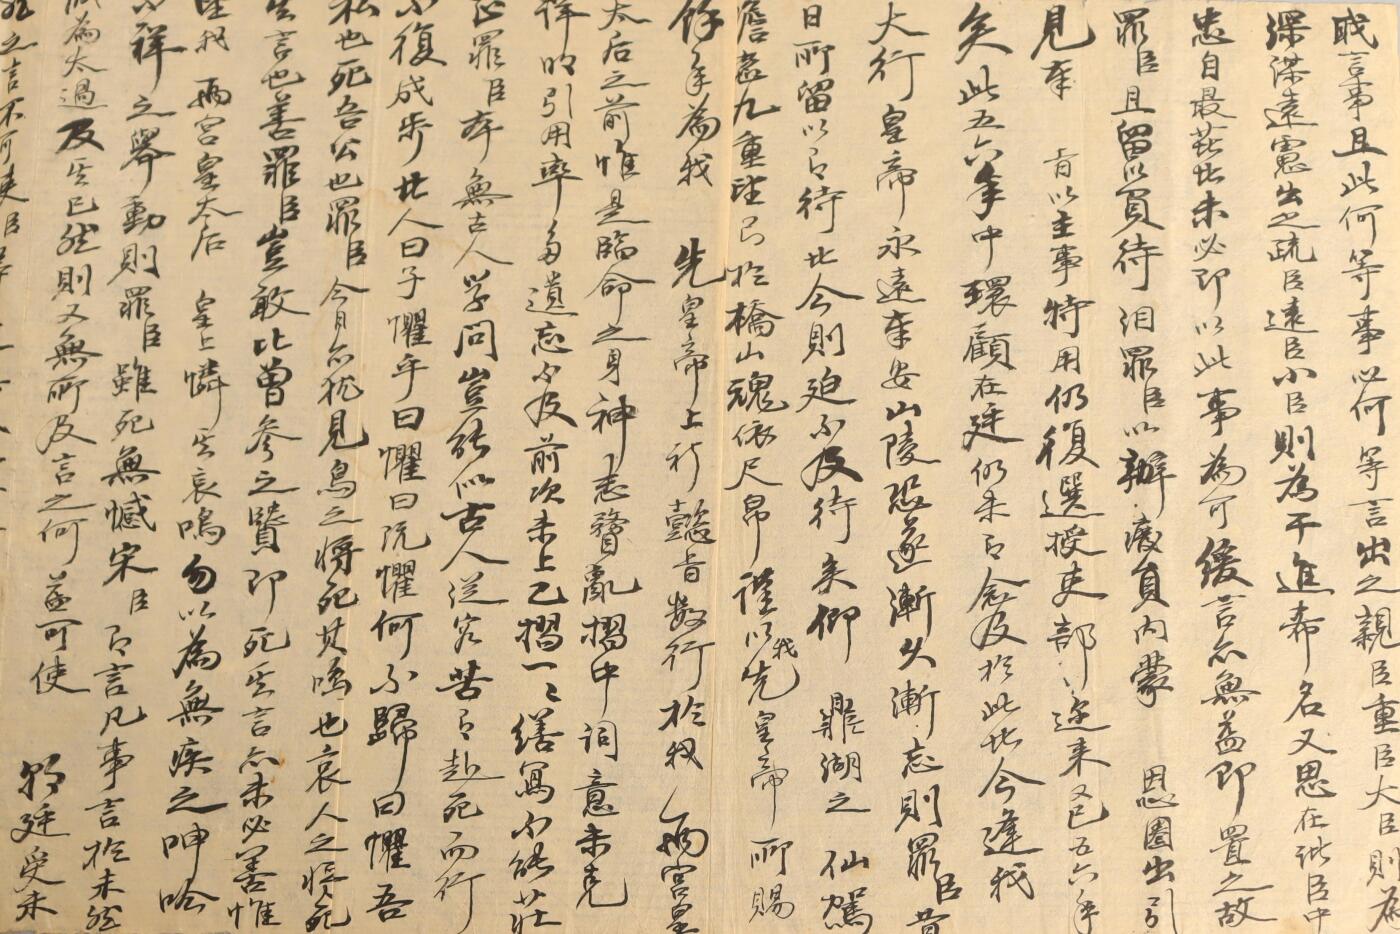 戝言事且此何等事此何等言出之親臣重臣大臣則為
深謀遠慮出之疏臣遠臣小臣則為干進希名又思在街臣中
忠自最甚此未必即以此事為可緩言亦無益即置之故
罪臣且留以有待洎罪臣以辦廢員內蒙 恩圈出引
見奉 旨以主事特用仍復選授吏部迩来又已五六年
矣此五六年中環顧在廷仍未有念及於此者今逢我
大行 皇帝永遠奉安山陵恐遂漸久漸忘則罪臣昔
日所留以有待者今則迫不及待矣仰 鼎湖之 仙駕
瞻戀九重望弓於橋山魂依尺帛謹以我先皇帝所賜
餘年為我 先皇帝上祈懿旨數行於我 兩宮皇
太后之前惟是臨命之身神志瞀亂摺中詞意未克
詳明引用率多遺忘不及前次未上之摺一二繕寫不能莊
正罪臣本無古人學問豈能似古人從容昔有赴死而行
不復成步者人曰子懼乎曰懼曰既懼何不歸曰懼吾
私也死吾公也罪臣今日亦猶見鳥之將死其鳴也哀人之將死
其言也善罪臣豈敢比曾參之賢即死其言亦未必善惟
望我 兩宮皇太后 皇上憐其哀鳴勿以為無疾之呻吟
不祥之舉動則罪臣雖死無憾宋臣有言凡事言於未然
誠為太過及其已然則又無所及言之何益可使 朝廷受未
然之言不可使臣等